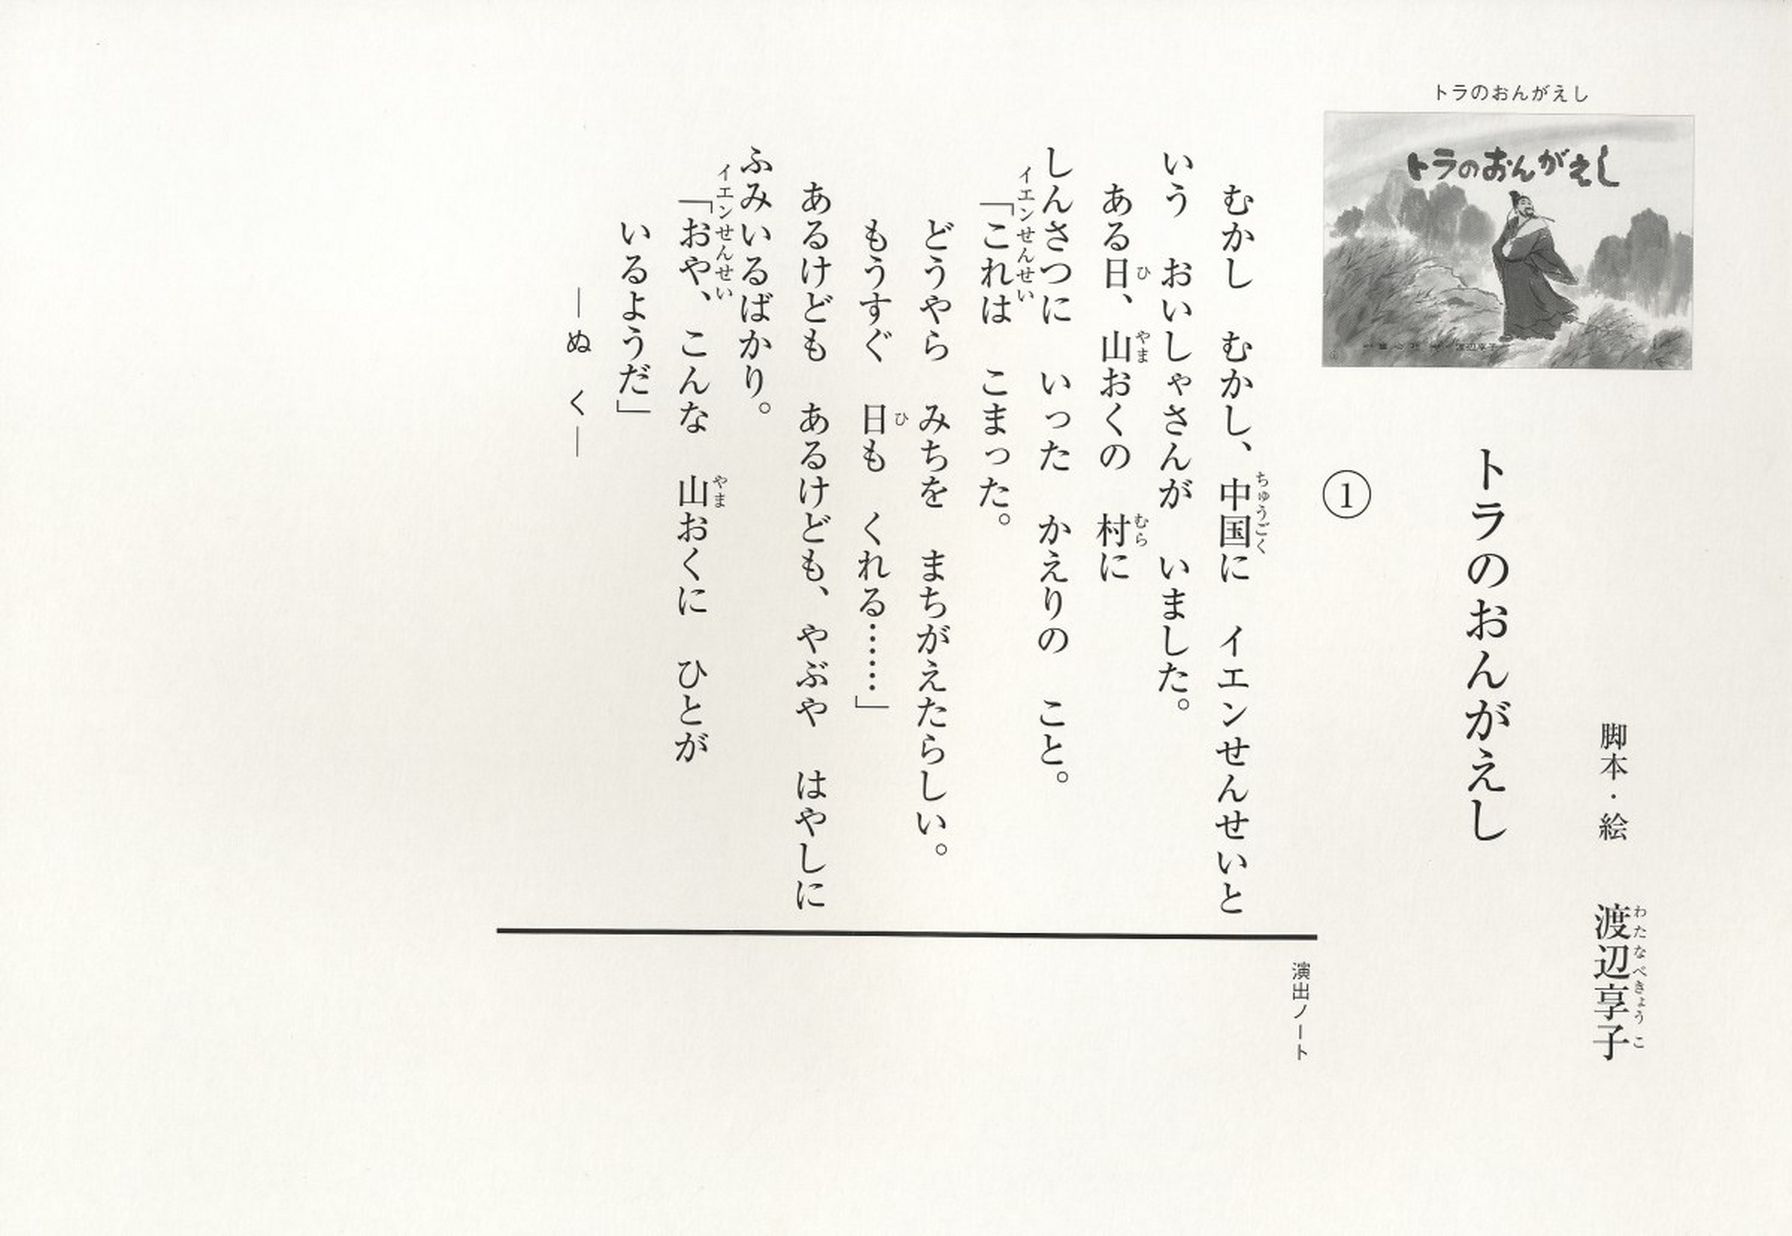 トラのおんがえし
トラのおんがえし
脚本・絵　渡辺享子
わたなべきょうこ
トラのおんがえし
①
むかし　むかし、中国に　イエンせんせいと
ちゅうごく
いう　おいしゃさんが　いました。
ある日、山おくの　村に
ひ　やま　むら
しんさつに　いった　かえりの　こと。
イエンせんせい
「これは　こまった。
どうやら　みちを　まちがえたらしい。
もうすぐ　日も　くれる……」
ひ
あるけども　あるけども、やぶや　はやしに
ふみいるばかり。
イエンせんせい
「おや、こんな　山おくに　ひとが
やま
いるようだ」
―ぬ　く―
演出ノート